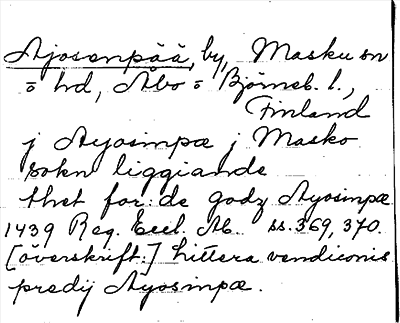 Ajosenpää, by, Masku sn
o hd, Åbo o Björneb. l.,
Finland
j Ayosimpæ j Masko
sokn liggiande
thet for:de godz Ayosimpæ
1439 Reg. Eccl. Ab. ss. 369, 370.
[överskrift:] littera vendicionis
predij Ayosimpæ.